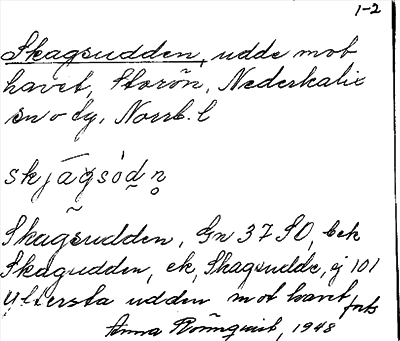 1-2
Skagsudden, udde mot
havet, Storön, Nederkalix
sn o dg. Norrb. l
skjāgsòdn̥
Skagsudden, Gn 37 SO, bek
Skagudden, ek, Skagsudde, ej 101
Yttersta udden mot havet forts
Anna Rönnqvist, 1948